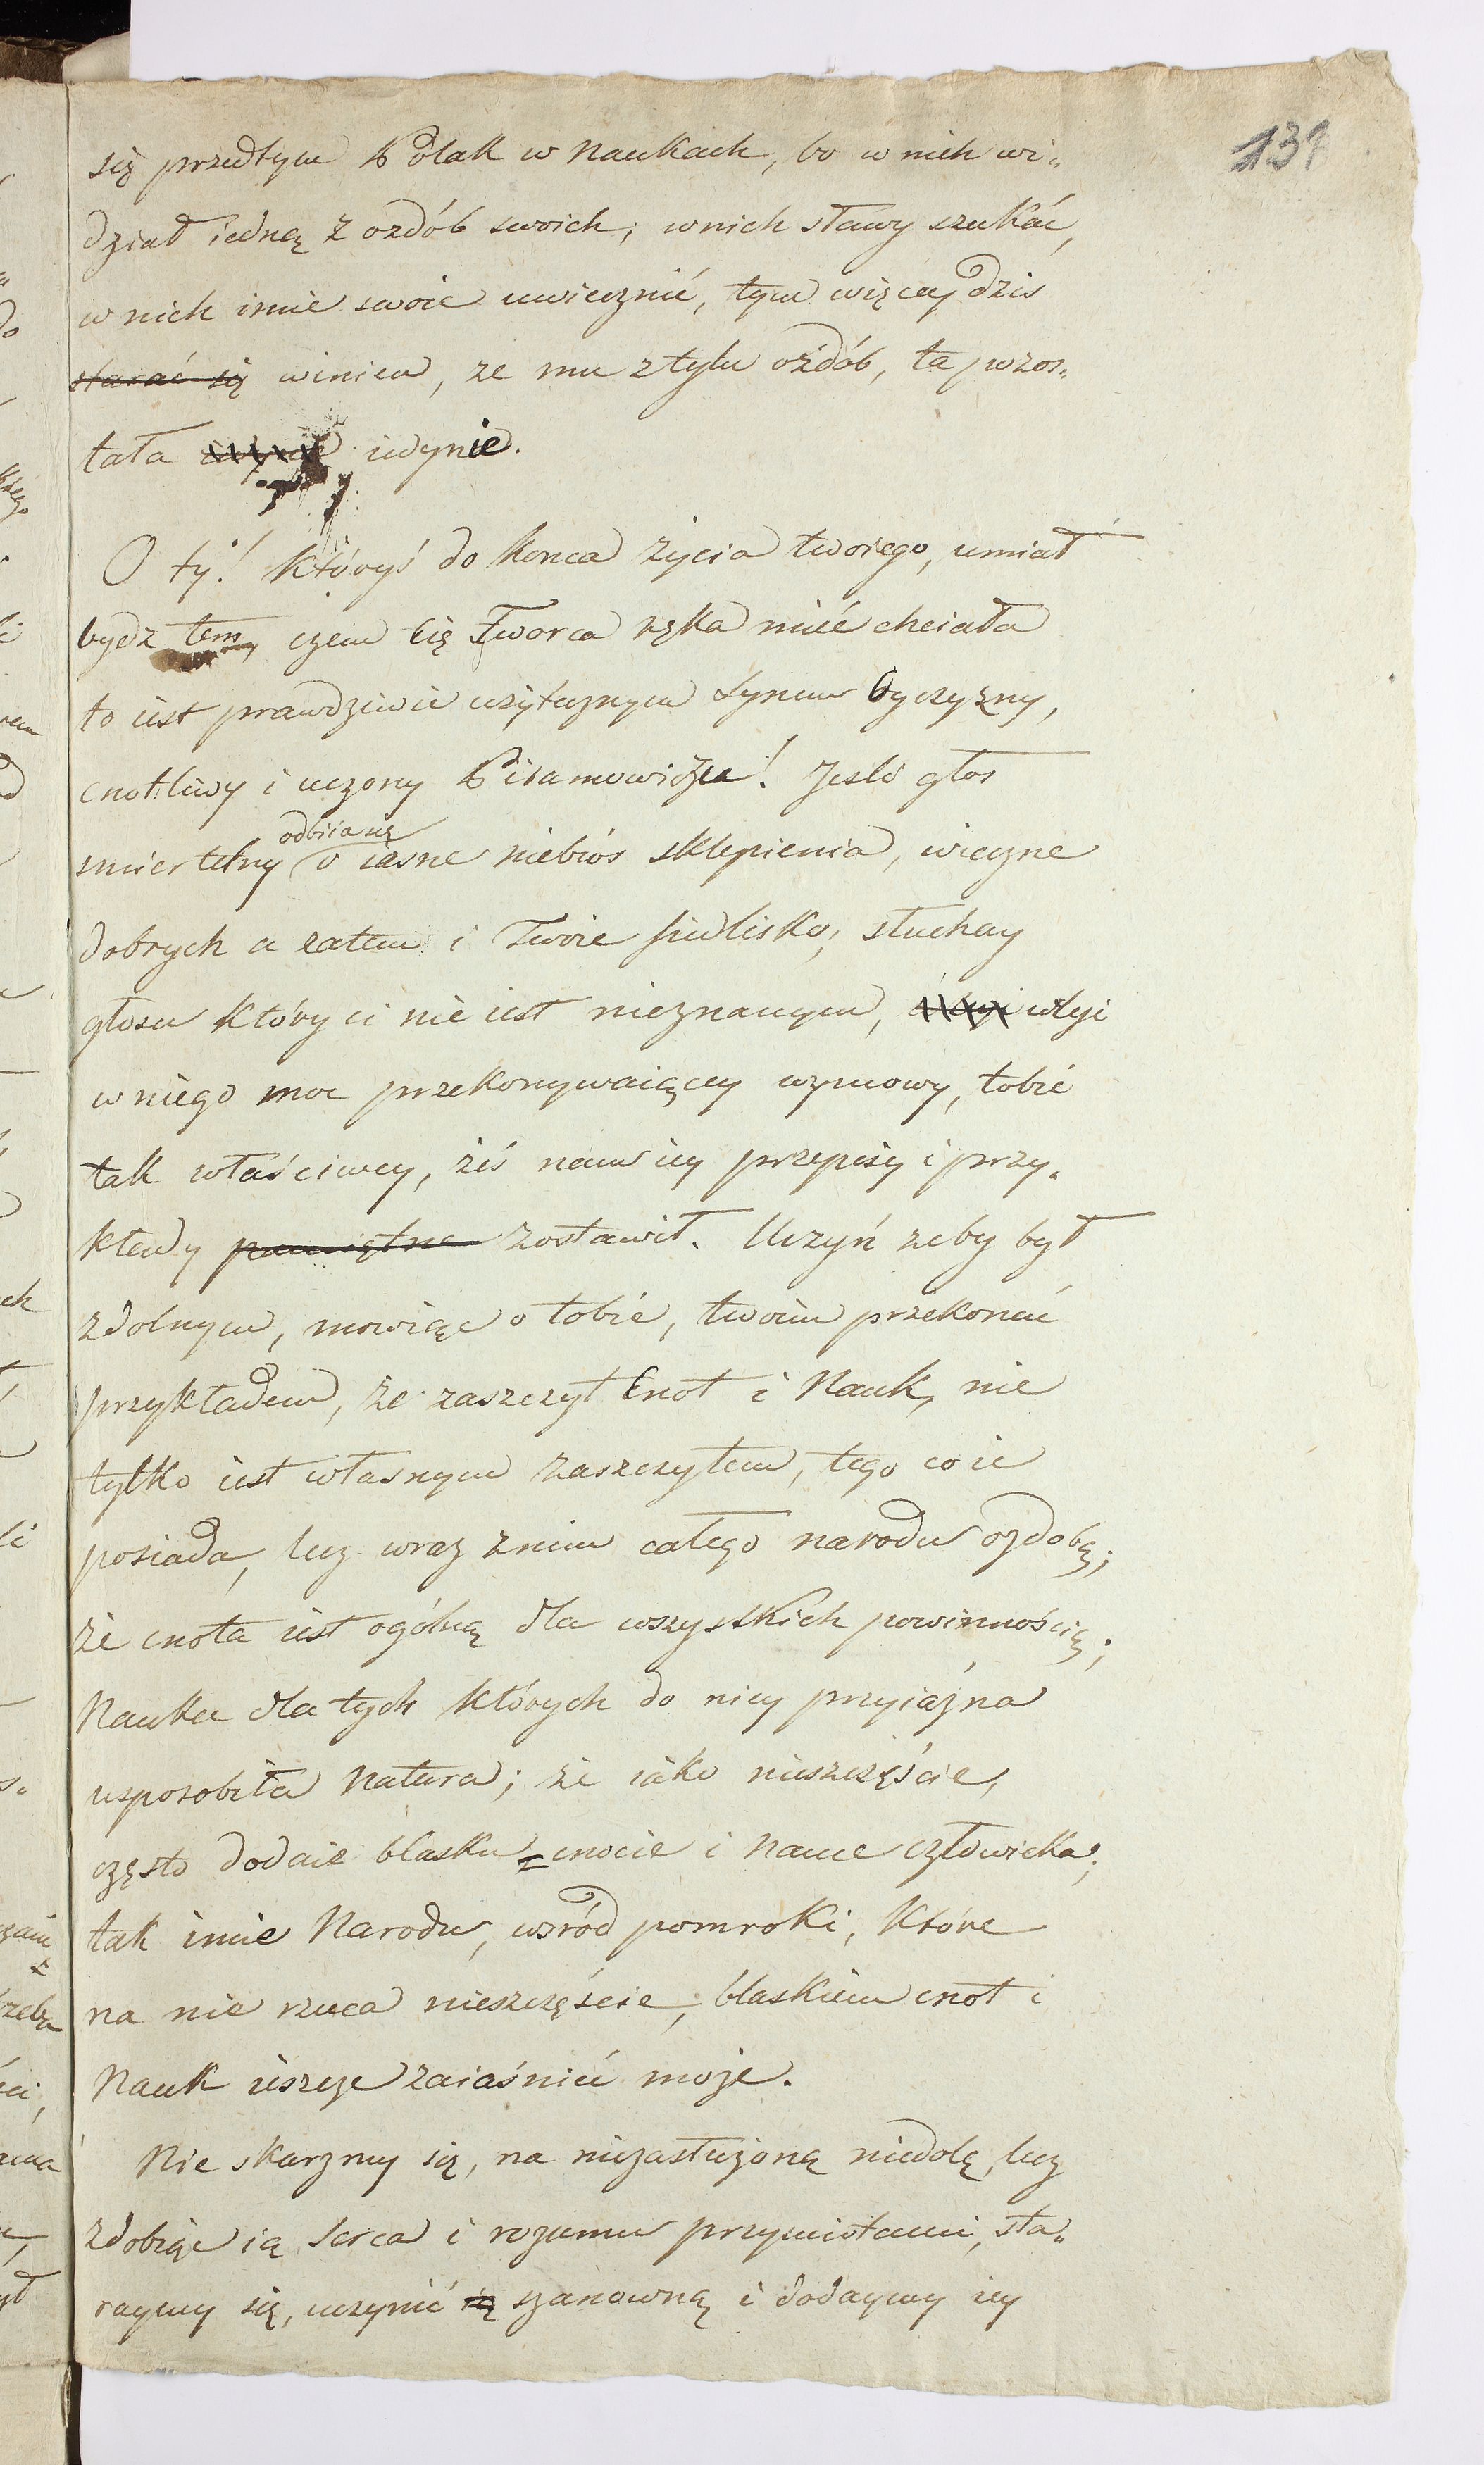 137
się przedtym Polak w Naukach, bo w nich wi„
dział iedną z ozdób swoich; w nich sławy szukać,
w nich imie swoie uwiecznić, tym więcey dzis
starać się winien, że mu z tylu ozdób, ta pozos„
tała iedynie.
O ty! któryś do konca życia twoiego, umiał
bydz tem, czem cię Tworca ręka mieć chciała
to iest prawdziwie użytecznym synem Oyczyzny,
cnotliwy i uczony Piramowiczu! Jesli głos
odbiia się
smiertelny o iasne niebios sklepienia, wieczne
dobrych a zatem i Twoie siedlisko; słuchay
głosu który ci nie iest nieznanym, wleyi
w niego moc przekonywaiącey wymowy, tobie
tak właściwey, żeś nam iey przepisy i przy„
kłady pamiętne zostawił. Uczyń zeby był
zdolnym, mowiąc o tobie, twoim przekonać
przykładem, że zaszczyt Cnot i Nauk, nie
tylko iest własnym zaszczytem, tego co ie
posiada, lecz wraz z nim całego narodu ozdobą;
że cnota iest ogólną dla wszystkich powinnością;
Nauka dla tych których do niey przyiaźna
usposobiła Natura; że iako nieszczęście,
często dodaie blasku cnocie i Nauce człowieka;
tak imie Narodu, wsród pomroki, które
na nie rzuca nieszczęście, blaskiem cnot i
Nauk ieszcze zaiaśnieć może.
Nie skarzmy się, na niezasłużoną niedolę, lecz
zdobiąc ią serca i rozumu przymiotami, sta„
raymy się, uczynić ią szanowną i dodaymy iey